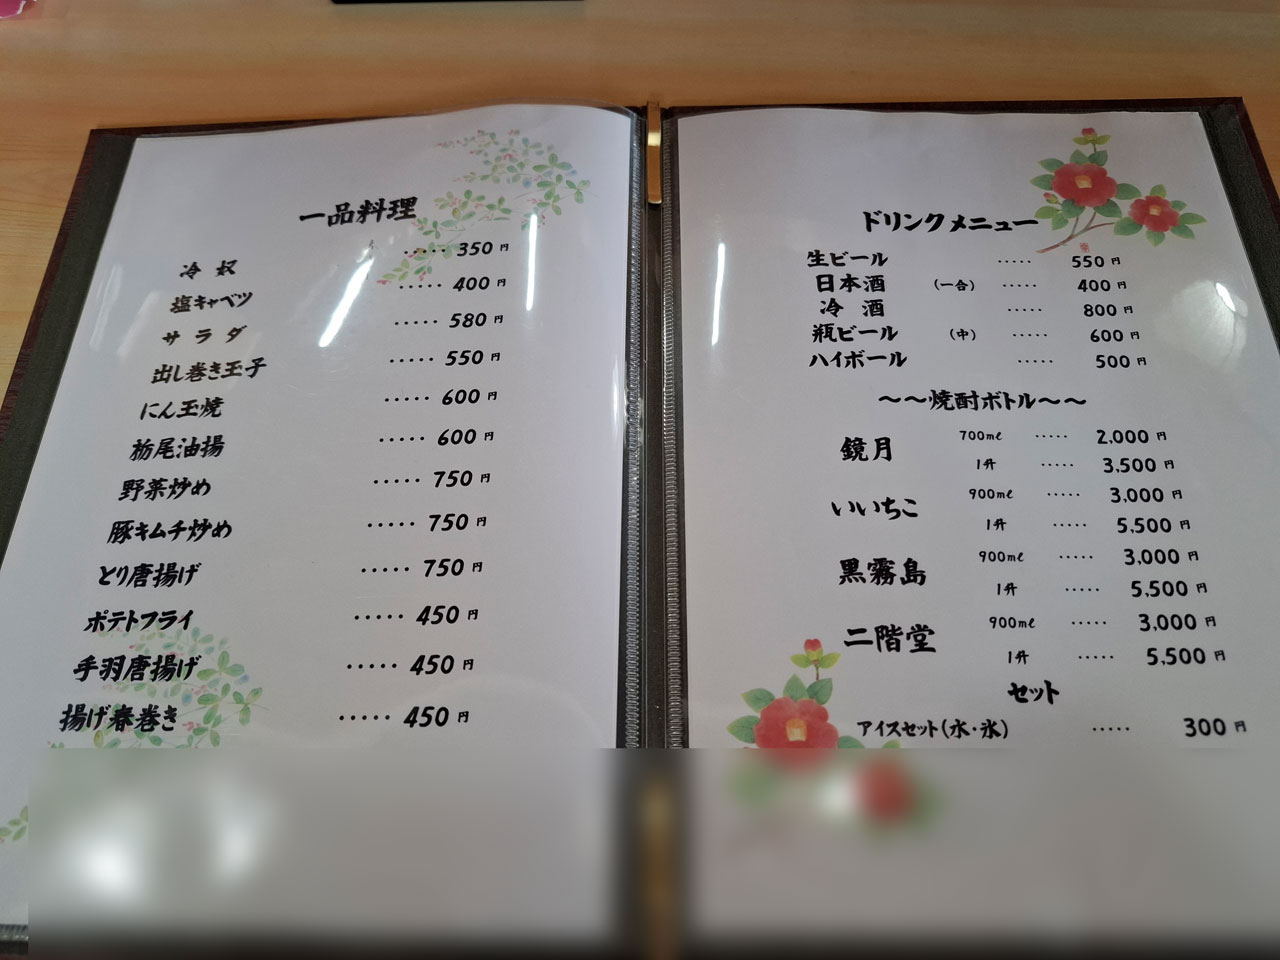 一品料理
冷奴 ····· 350円
塩キャベツ ····· 400円
サラダ ····· 580円
出し巻き玉子 ····· 550円
にん玉焼 ····· 600円
栃尾油揚 ····· 600円
野菜炒め ····· 750円
豚キムチ炒め ····· 750円
とり唐揚げ ····· 750円
ポテトフライ ····· 450円
手羽唐揚げ ····· 450円
揚げ春巻き ····· 450円
ドリンクメニュー
生ビール ····· 550円
日本酒 (一合) ····· 400円
冷酒 ····· 800円
瓶ビール (中) ····· 600円
ハイボール ····· 500円
～～焼酎ボトル～～
鏡月 700ml ····· 2,000円
1升 ····· 3,500円
いいちこ 900ml ····· 3,000円
1升 ····· 5,500円
黒霧島 900ml ····· 3,000円
1升 ····· 5,500円
二階堂 900ml ····· 3,000円
1升 ····· 5,500円
セット
アイスセット(水・氷) ····· 300円